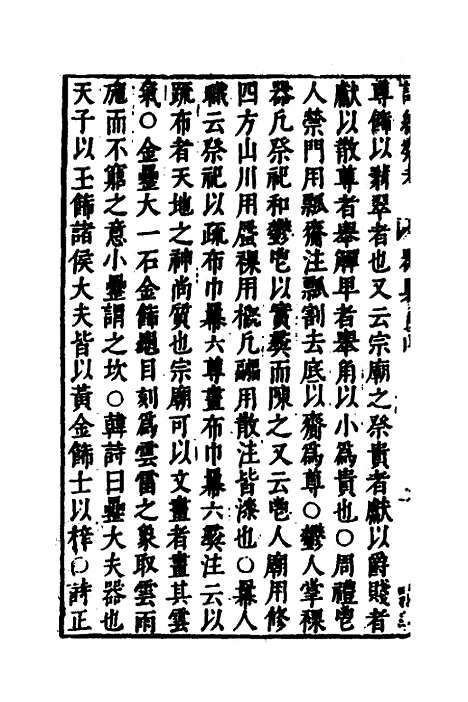 尊飾以翡翠者也又云宗廟之祭貴者獻以爵賤者
獻以散尊者舉觶卑者舉角以小為貴也○周禮鬯
人禜門用瓢齎注瓢割去底以齎為尊○鬱人掌祼
器凡祭祀和鬱鬯以實彝而陳之又云鬯人廟用修
四方山川用蜃祼用概凡疈用散注皆漆也○冪人
職云祭祀以疏布巾冪六尊畫布巾冪六彝注云以
疏布者天地之神尚質也宗廟可以文畫者畫其雲
氣○金罍大一石金飾龜目刻為雲雷之象取雲雨
施而不窮之意小罍謂之坎○韓詩曰罍大夫器也
天子以玉飾諸侯大夫皆以黃金飾士以梓○詩正